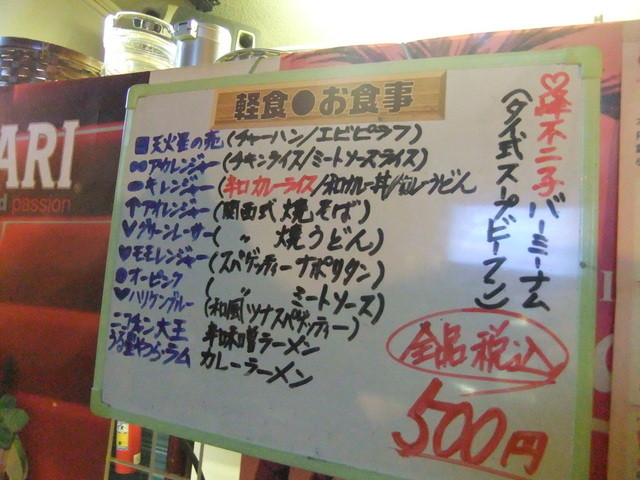 軽食●お食事
天火星の亮(チャーハン/エビピラフ)
∞アカレンジャー(チキンライス/ミートソースライス)
━キレンジャー(辛口カレーライス/和カレー丼/カレーうどん
↑アオレンジャー(関西式焼そば)
✓グリーンレーサー(〃焼うどん)
♥モモレンジャー(スパゲッティーナポリタン)
●オーピンク(〃ミートソース)
♥ハリケンブルー(和風ツナスパゲッティー)
ニコチン大王 辛味噌ラーメン
うる星やつらラム カレーラーメン
♡峰不二子 バーミーナム
(タイ式スープビーフン)
全品税込
500円
ARI
passion